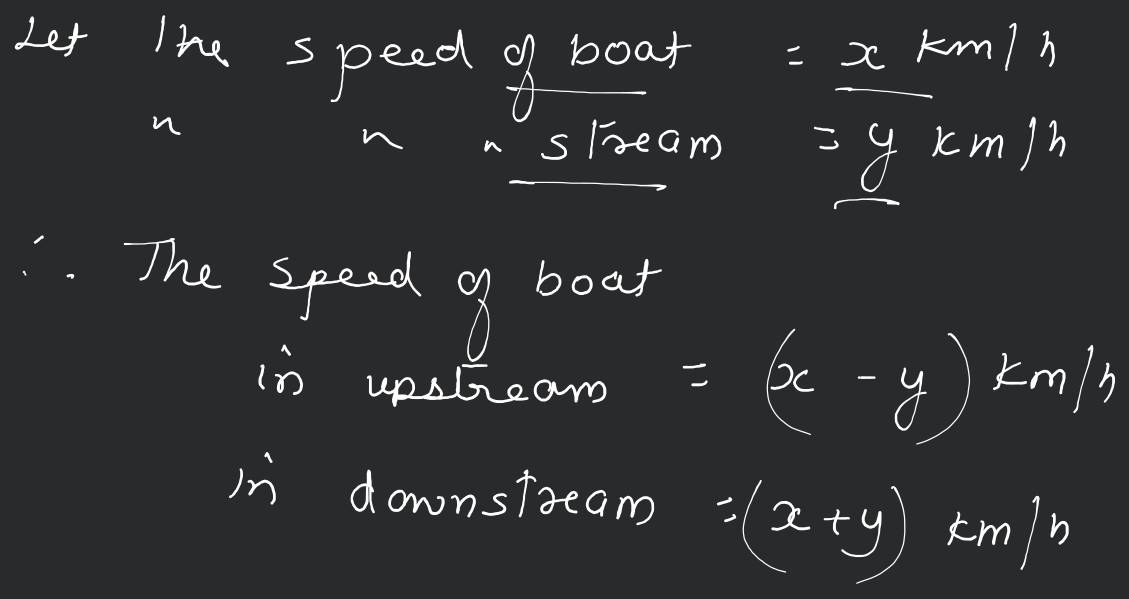 Let the speed of boat = x km/h
" " " stream = y km/h
∴ The speed of boat
in upstream = (x - y) km/h
in downstream = (x+y) km/h